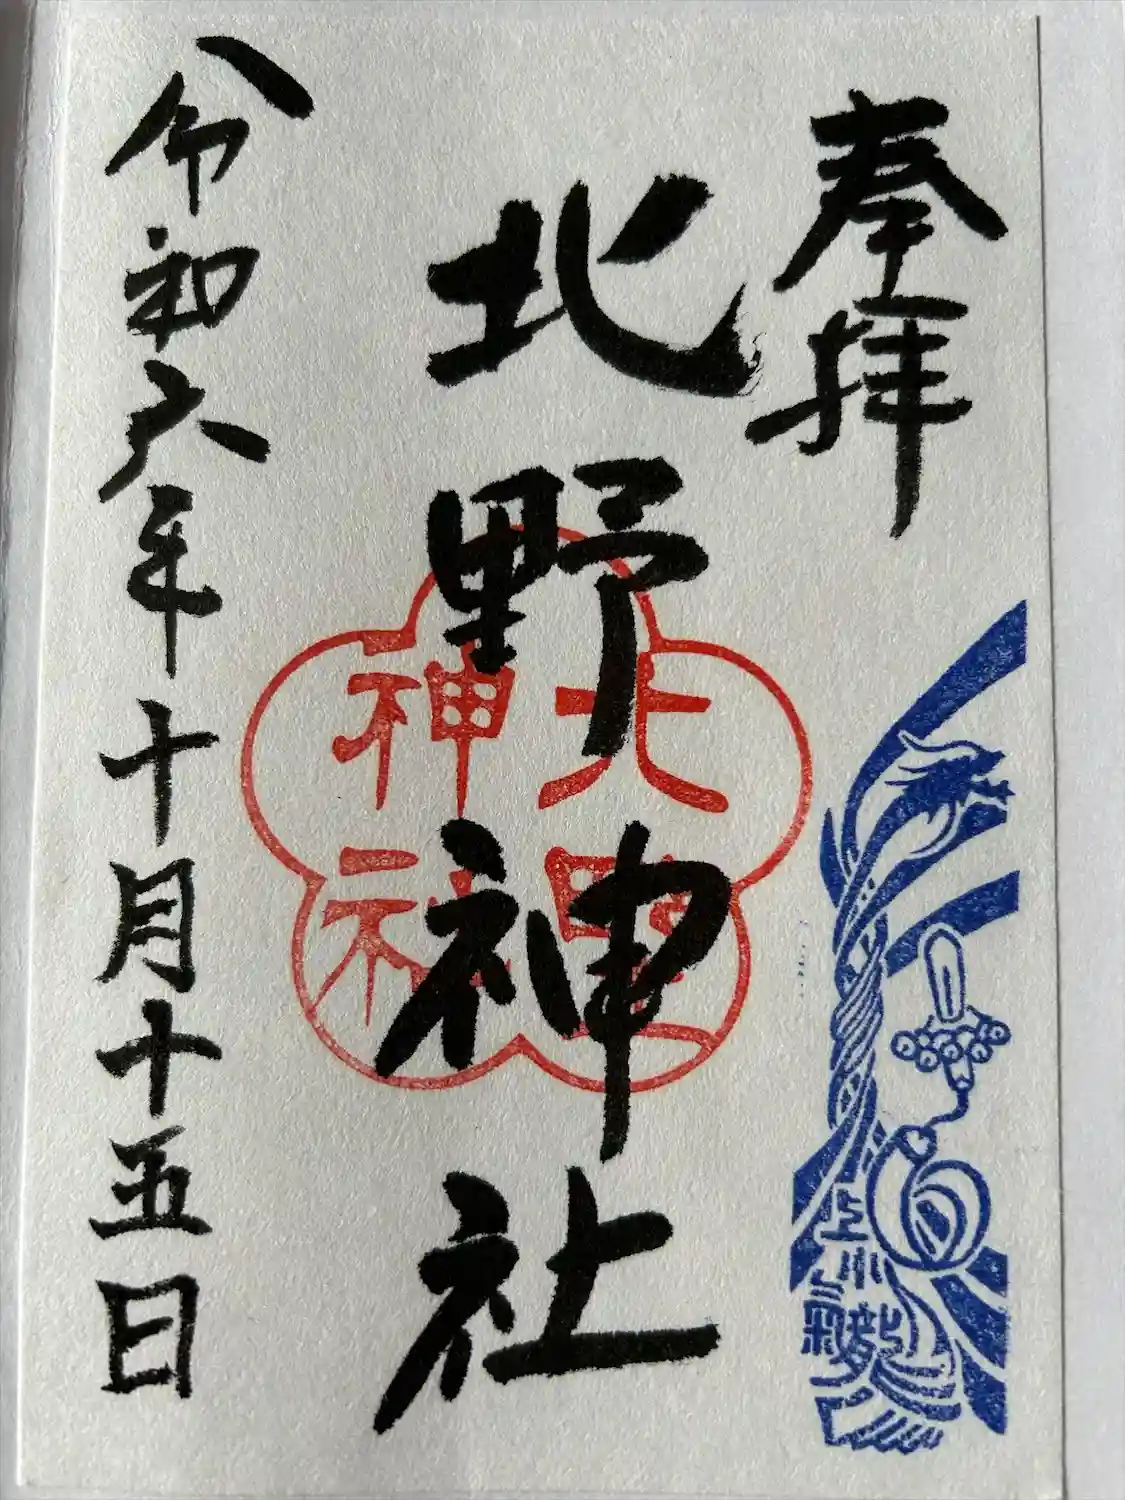 奉拝
北野神社
令和六年十月十五日
北野
神社